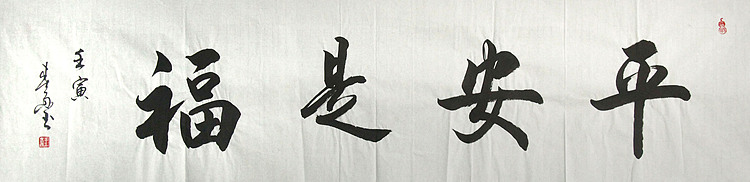 平安是福
壬寅